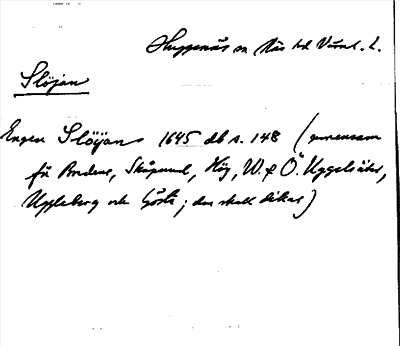 Huggenäs sn Näs hd Värml. l.
Slöjan
Engen Slöijan 1645 db s. 148 (gemensam
för Bodane, Skåpund, Hög, W. & Ö. Uggelsäter,
Uggleberg och Gösta; den skall dikas)